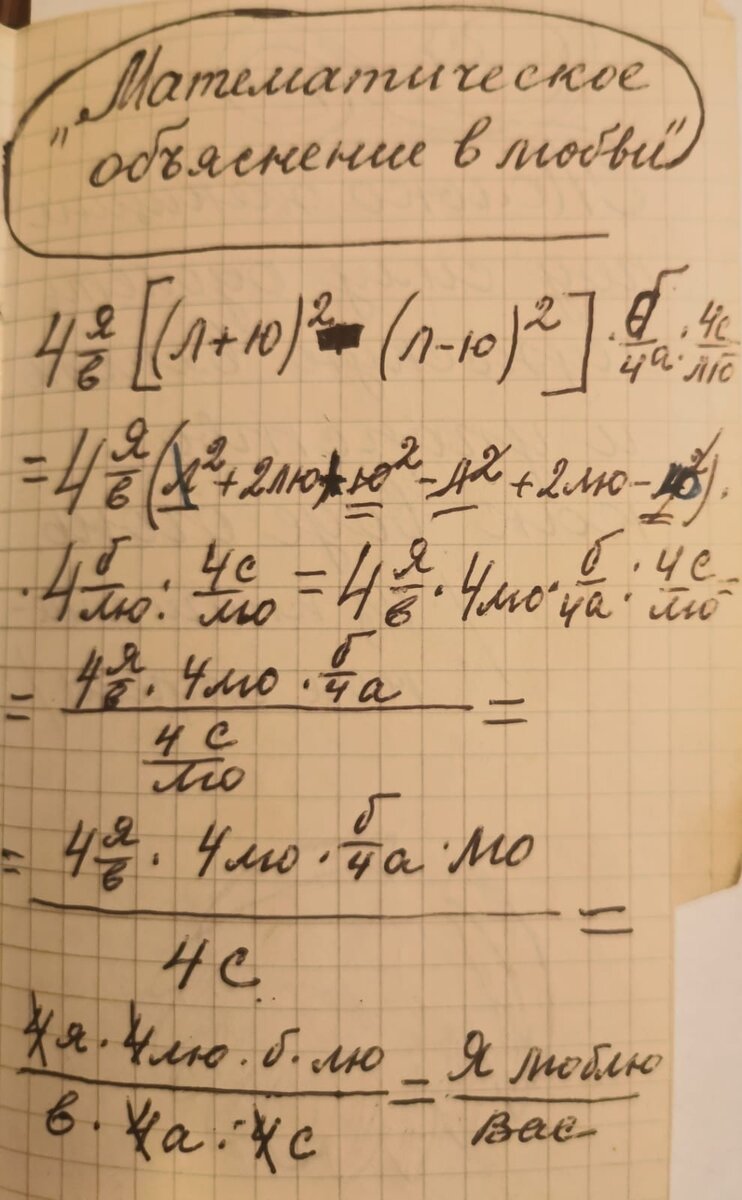 "Математическое
объяснение в любви"
4 я/в [(л+ю)² - (л-ю)²] · б/4а : 4с/лю
= 4 я/в (л² + 2лю + ю² - л² + 2лю - ю²) ·
· 4 б/лю : 4с/лю = 4 я/в · 4лю · б/4а : 4с/лю =
= (4 я/в · 4лю · б/4 а) / (4 с/лю) =
= (4 я/в · 4лю · б/4 а · лю) / 4с =
(4я · 4лю · б · лю) / (в · 4а · 4с) = Я люблю / Вас